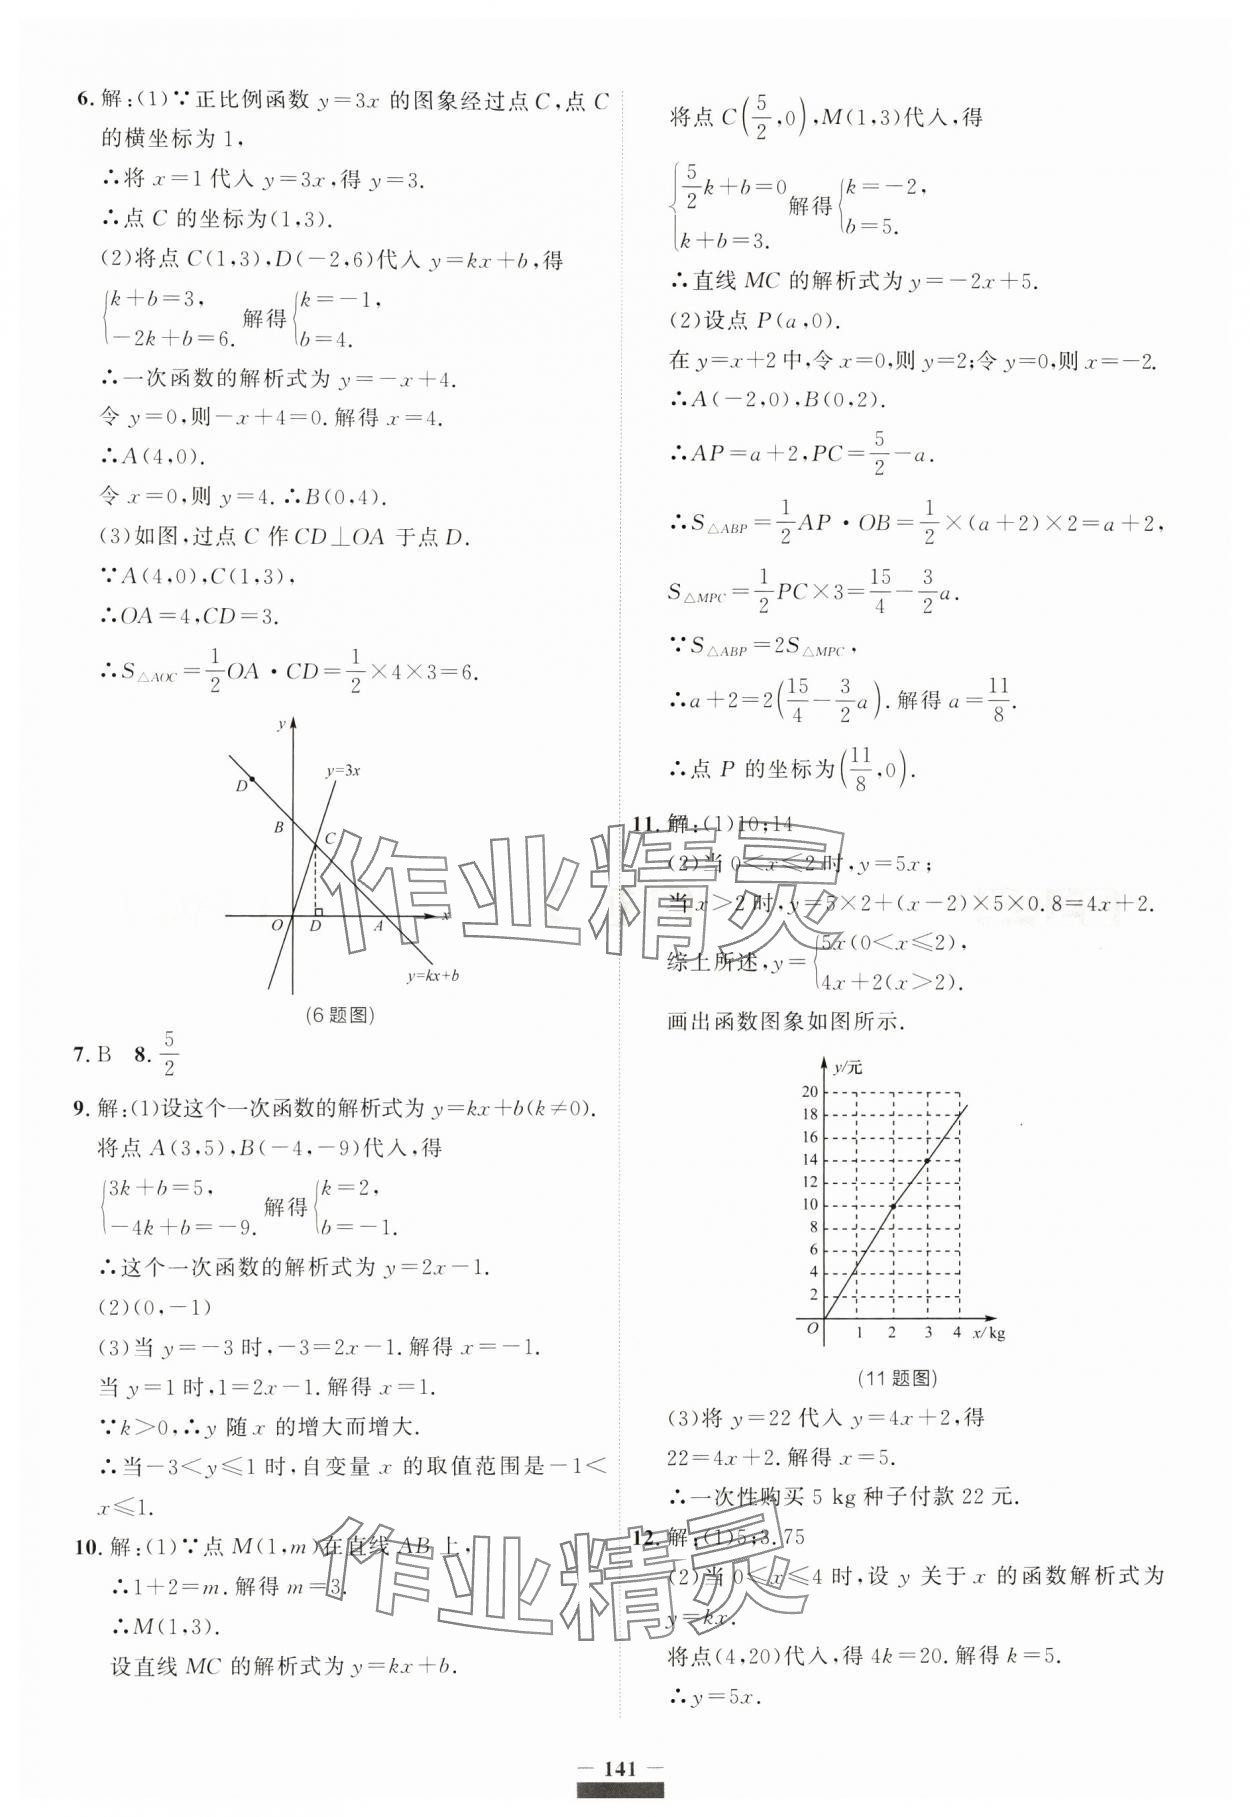 6. 解:(1)∵正比例函数 y=3x 的图象经过点 C,点 C
的横坐标为 1,
∴将 x=1 代入 y=3x,得 y=3.
∴点 C 的坐标为(1,3).
(2)将点 C(1,3),D(-2,6)代入 y=kx+b,得
{k+b=3, -2k+b=6. 解得{k=-1, b=4.
∴一次函数的解析式为 y=-x+4.
令 y=0,则-x+4=0.解得 x=4.
∴A(4,0).
令 x=0,则 y=4.∴B(0,4).
(3)如图,过点 C 作 CD⊥OA 于点 D.
∵A(4,0),C(1,3),
∴OA=4,CD=3.
∴S△AOC=1/2OA·CD=1/2×4×3=6.
y
D
y=3x
B
C
O D A x
y=kx+b
(6题图)
7. B 8. 5/2
9. 解:(1)设这个一次函数的解析式为 y=kx+b(k≠0).
将点 A(3,5),B(-4,-9)代入,得
{3k+b=5, -4k+b=-9. 解得{k=2, b=-1.
∴这个一次函数的解析式为 y=2x-1.
(2)(0,-1)
(3)当 y=-3 时,-3=2x-1.解得 x=-1.
当 y=1 时,1=2x-1.解得 x=1.
∵k>0,∴y 随 x 的增大而增大.
∴当-3<y≤1 时,自变量 x 的取值范围是-1<
x≤1.
10. 解:(1)∵点 M(1,m)在直线 AB 上,
∴1+2=m.解得 m=3.
∴M(1,3).
设直线 MC 的解析式为 y=kx+b.
将点 C(5/2,0),M(1,3)代入,得
{5/2k+b=0 k+b=3. 解得{k=-2, b=5.
∴直线 MC 的解析式为 y=-2x+5.
(2)设点 P(a,0).
在 y=x+2 中,令 x=0,则 y=2;令 y=0,则 x=-2.
∴A(-2,0),B(0,2).
∴AP=a+2,PC=5/2-a.
∴S△ABP=1/2AP·OB=1/2×(a+2)×2=a+2,
S△MPC=1/2PC×3=15/4-3/2a.
∵S△ABP=2S△MPC,
∴a+2=2(15/4-3/2a).解得 a=11/8.
∴点 P 的坐标为(11/8,0).
11. 解:(1)10;14
(2)当 0<x≤2 时,y=5x;
当 x>2 时,y=5×2+(x-2)×5×0.8=4x+2.
综上所述,y={5x(0<x≤2), 4x+2(x>2).
画出函数图象如图所示.
y/元
20
18
16
14
12
10
8
6
4
2
O 1 2 3 4 x/kg
(11题图)
(3)将 y=22 代入 y=4x+2,得
22=4x+2.解得 x=5.
∴一次性购买 5 kg 种子付款 22 元.
12. 解:(1)5;3.75
(2)当 0≤x≤4 时,设 y 关于 x 的函数解析式为
y=kx.
将点(4,20)代入,得 4k=20.解得 k=5.
∴y=5x.
作业精灵
作业精灵
— 141 —